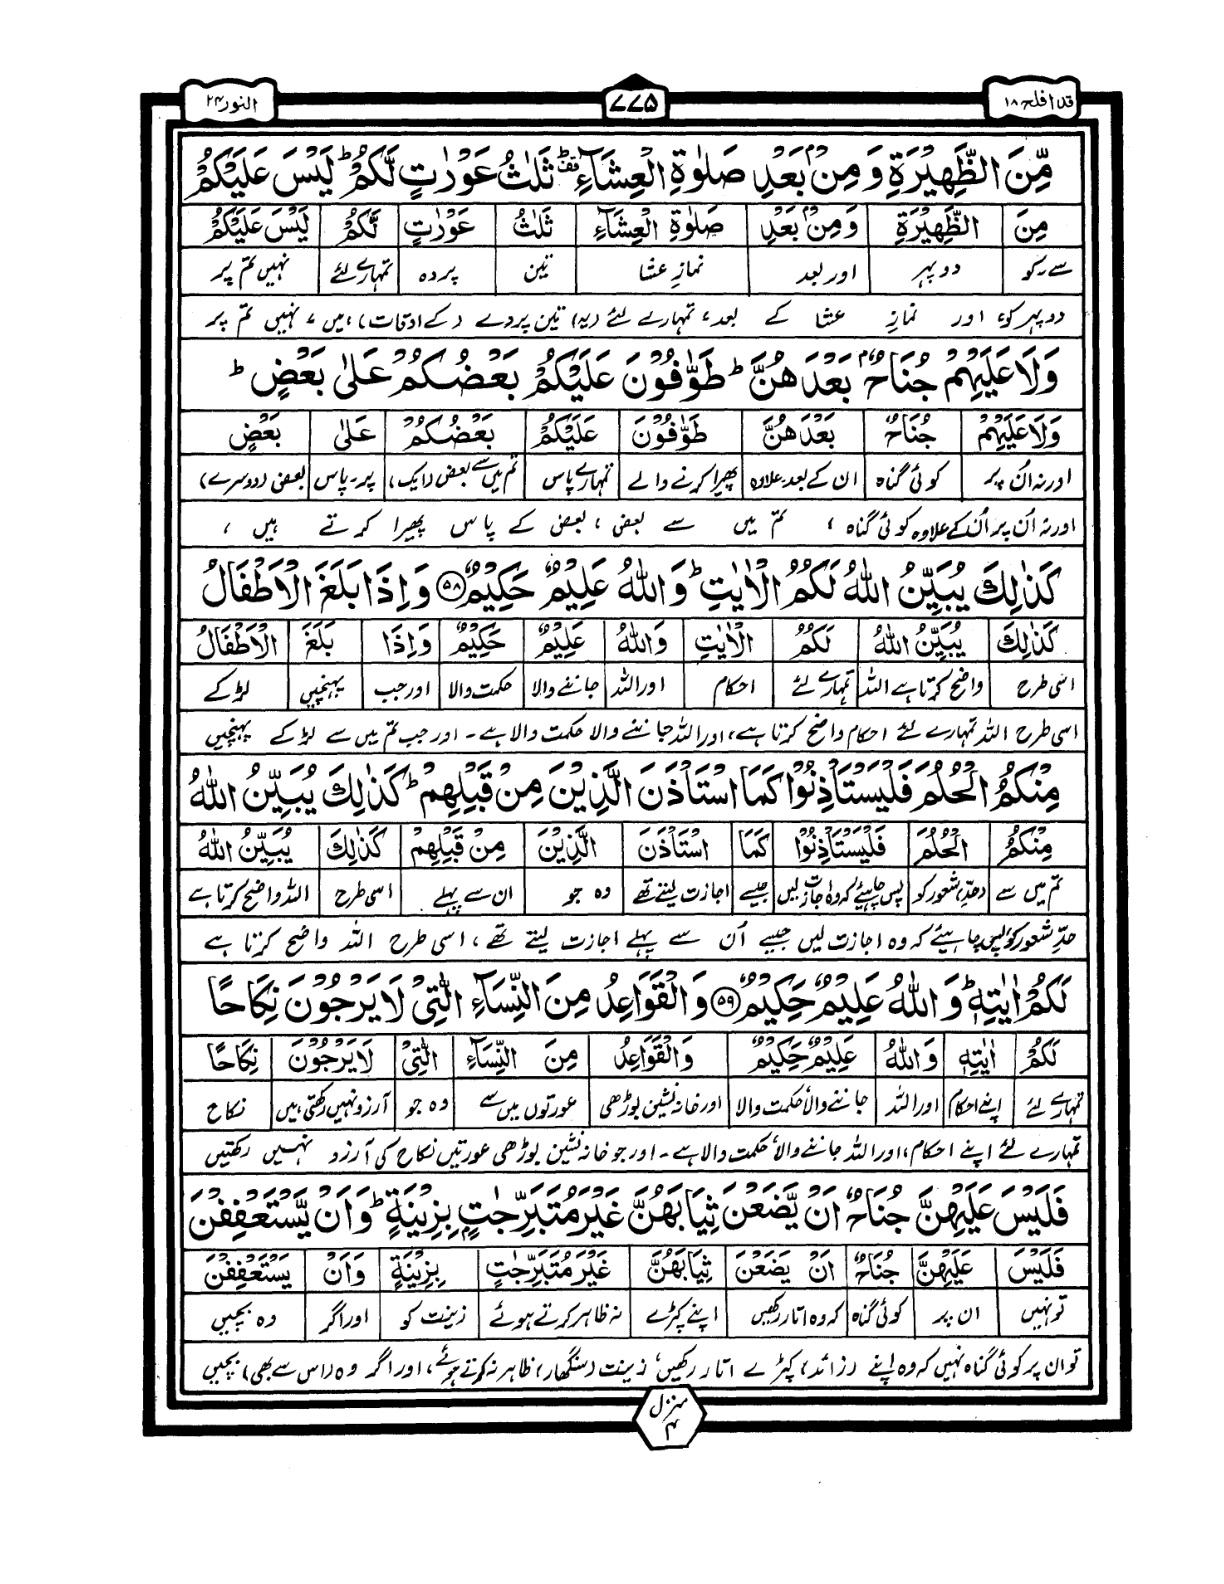 قد افلح ۱۸
۷۷۵
النور ۲۴
مِّنَ الظَّهِيْرَةِ وَمِنْۢ بَعْدِ صَلٰوةِ الْعِشَآءِ ثَلٰثُ عَوْرٰتٍ لَّكُمْ ؕ لَيْسَ عَلَيْكُمْ
مِنَ الظَّهِيْرَةِ وَمِنْۢ بَعْدِ صَلٰوةِ الْعِشَآءِ ثَلٰثُ عَوْرٰتٍ لَّكُمْ لَيْسَ عَلَيْكُمْ
سے۔کو دوپہر اور بعد نمازِ عشا تین پردہ تمہارے لئے نہیں تم پر
دوپہر کو، اور نمازِ عشا کے بعد، تمہارے لئے (یہ) تین پردے (کے اوقات) ہیں، نہیں تم پر
وَلَا عَلَيْهِمْ جُنَاحٌۢ بَعْدَهُنَّ ؕ طَوّٰفُوْنَ عَلَيْكُمْ بَعْضُكُمْ عَلٰى بَعْضٍ ؕ
وَلَا عَلَيْهِمْ جُنَاحٌۢ بَعْدَهُنَّ طَوّٰفُوْنَ عَلَيْكُمْ بَعْضُكُمْ عَلٰى بَعْضٍ
اور نہ اُن پر کوئی گناہ ان کے بعد۔علاوہ پھیرا کرنے والے تمہارے پاس تم میں سے بعض (ایک) پر۔پاس بعض (دوسرے)
اور نہ اُن پر اُن کے علاوہ کوئی گناہ، تم میں سے بعض، بعض کے پاس پھیرا کرتے ہیں،
كَذٰلِكَ يُبَيِّنُ اللّٰهُ لَكُمُ الْاٰيٰتِ ؕ وَاللّٰهُ عَلِيْمٌ حَكِيْمٌ ﴿۵۸﴾ وَاِذَا بَلَغَ الْاَطْفَالُ
كَذٰلِكَ يُبَيِّنُ اللّٰهُ لَكُمُ الْاٰيٰتِ وَاللّٰهُ عَلِيْمٌ حَكِيْمٌ وَاِذَا بَلَغَ الْاَطْفَالُ
اسی طرح واضح کرتا ہے اللہ تمہارے لئے احکام اور اللہ جاننے والا حکمت والا اور جب پہنچیں لڑکے
اسی طرح اللہ تمہارے لئے احکام واضح کرتا ہے، اور اللہ جاننے والا حکمت والا ہے۔ اور جب تم میں سے لڑکے پہنچیں
مِنْكُمُ الْحُلُمَ فَلْيَسْتَاْذِنُوْا كَمَا اسْتَاْذَنَ الَّذِيْنَ مِنْ قَبْلِهِمْ ؕ كَذٰلِكَ يُبَيِّنُ اللّٰهُ
مِنْكُمُ الْحُلُمَ فَلْيَسْتَاْذِنُوْا كَمَا اسْتَاْذَنَ الَّذِيْنَ مِنْ قَبْلِهِمْ كَذٰلِكَ يُبَيِّنُ اللّٰهُ
تم میں سے (حدِّ) شعور کو پس چاہیئے کہ وہ اجازت لیں جیسے اجازت لیتے تھے وہ جو ان سے پہلے اسی طرح اللہ واضح کرتا ہے
حدِّ شعور کو پس چاہیئے کہ وہ اجازت لیں جیسے اُن سے پہلے اجازت لیتے تھے، اسی طرح اللہ واضح کرتا ہے
لَكُمْ اٰيٰتِهٖ ؕ وَاللّٰهُ عَلِيْمٌ حَكِيْمٌ ﴿۵۹﴾ وَالْقَوَاعِدُ مِنَ النِّسَآءِ الّٰتِيْ لَا يَرْجُوْنَ نِكَاحًا
لَكُمْ اٰيٰتِهٖ وَاللّٰهُ عَلِيْمٌ حَكِيْمٌ وَالْقَوَاعِدُ مِنَ النِّسَآءِ الّٰتِيْ لَا يَرْجُوْنَ نِكَاحًا
تمہارے لئے اپنے احکام اور اللہ جاننے والا حکمت والا اور خانہ نشین بوڑھی عورتوں میں سے وہ جو آرزو نہیں رکھتی ہیں نکاح
تمہارے لئے اپنے احکام، اور اللہ جاننے والا حکمت والا ہے۔ اور جو خانہ نشین بوڑھی عورتیں نکاح کی آرزو نہیں رکھتیں
فَلَيْسَ عَلَيْهِنَّ جُنَاحٌ اَنْ يَّضَعْنَ ثِيَابَهُنَّ غَيْرَ مُتَبَرِّجٰتٍۭ بِزِيْنَةٍ ؕ وَاَنْ يَّسْتَعْفِفْنَ
فَلَيْسَ عَلَيْهِنَّ جُنَاحٌ اَنْ يَضَعْنَ ثِيَابَهُنَّ غَيْرَ مُتَبَرِّجٰتٍ بِزِيْنَةٍ وَاَنْ يَسْتَعْفِفْنَ
تو نہیں ان پر کوئی گناہ کہ وہ اتار رکھیں اپنے کپڑے نہ ظاہر کرتے ہوئے زینت کو اور اگر وہ بچیں
تو ان پر کوئی گناہ نہیں کہ وہ اپنے (زائد) کپڑے اتار رکھیں، زینت (سنگھار) ظاہر نہ کرتے ہوئے، اور اگر وہ (اس سے بھی) بچیں
منزل ۴